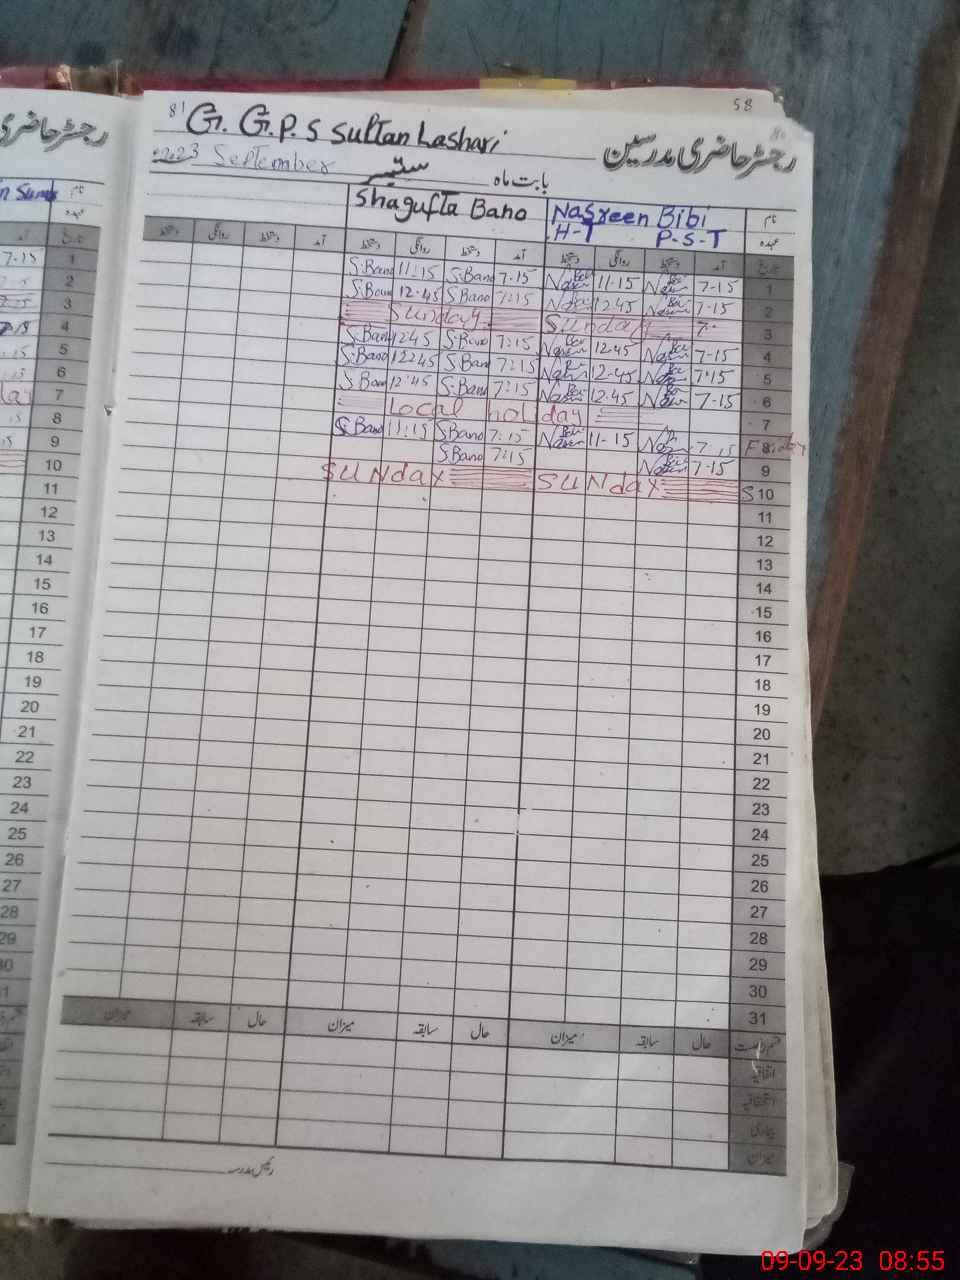 58
81 G. G.P.S Sultan Lashari رجسٹر حاضری مدرسین
2023 September ستمبر بابت ماہ
Shagufta Bano Nasreen Bibi نام
H-T P-S-T عہدہ
دستخط روانگی دستخط آمد دستخط روانگی دستخط آمد دستخط روانگی دستخط آمد تاریخ
S.Bano 11:15 S.Bano 7-15 11-15 7-15 1
S.Bano 12-45 S.Bano 7:15 12.45 7-15 2
Sunday Sunday 3
S.Bano 12:45 S.Bano 7:15 12-45 7-15 4
S.Bano 12:45 S.Bano 7:15 12-45 7:15 5
S.Bano 12:45 S.Bano 7:15 12.45 7-15 6
Local holiday 7
S.Bano 11:15 S.Bano 7:15 11-15 7.15 8 Friday
S.Bano 7:15 7-15 9
SUNday SUNday S 10
11
12
13
14
15
16
17
18
19
20
21
22
23
24
25
26
27
28
29
30
31
میزان سابقہ حال میزان سابقہ حال میزان سابقہ حال قسم رخصت
اتفاقیہ
استحقاقیہ
بیماری
میزان
رئیس مدرسہ
رجسٹر حاضری
نام
عہدہ
آمد تاریخ
7-15 1
2
3
4
5
6
7
8
9
10
11
12
13
14
15
16
17
18
19
20
21
22
23
24
25
26
27
28
29
30
31
09-09-23 08:55